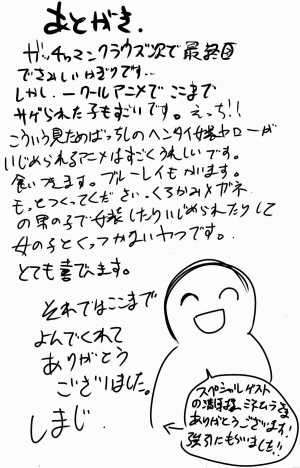 あとがき.
ガッチャマンクラウズ次で最終回
でさみしいかぎりです…
しかし、一クールアニメでここまで
サゲられた子もすごいです。えっち!!
こういう見ためばっちしのヘンタイ女装ヤローが
いじめられるアニメはすごくうれしいです。
食いつきます。ブルーレイもかいます。
もっとつくってください。くろかみメガネ
の男の子で女装したりいじめられたりして
女の子とくっつかないヤツです。
とても喜びます。
それではここまで
よんでくれて
ありがとう
ございました。
しまじ
スペシャルゲスト
の清水はミネムラさま
ありがとうございます!
強引にもらいました!!